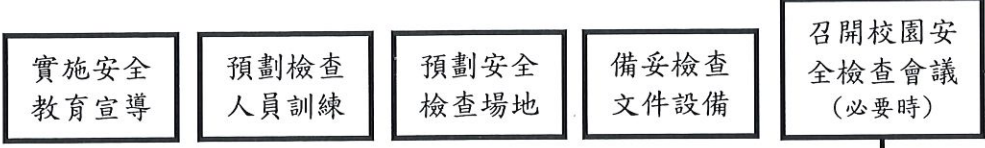 實施安全
教育宣導
預劃檢查
人員訓練
預劃安全
檢查場地
備妥檢查
文件設備
召開校園安
全檢查會議
(必要時)